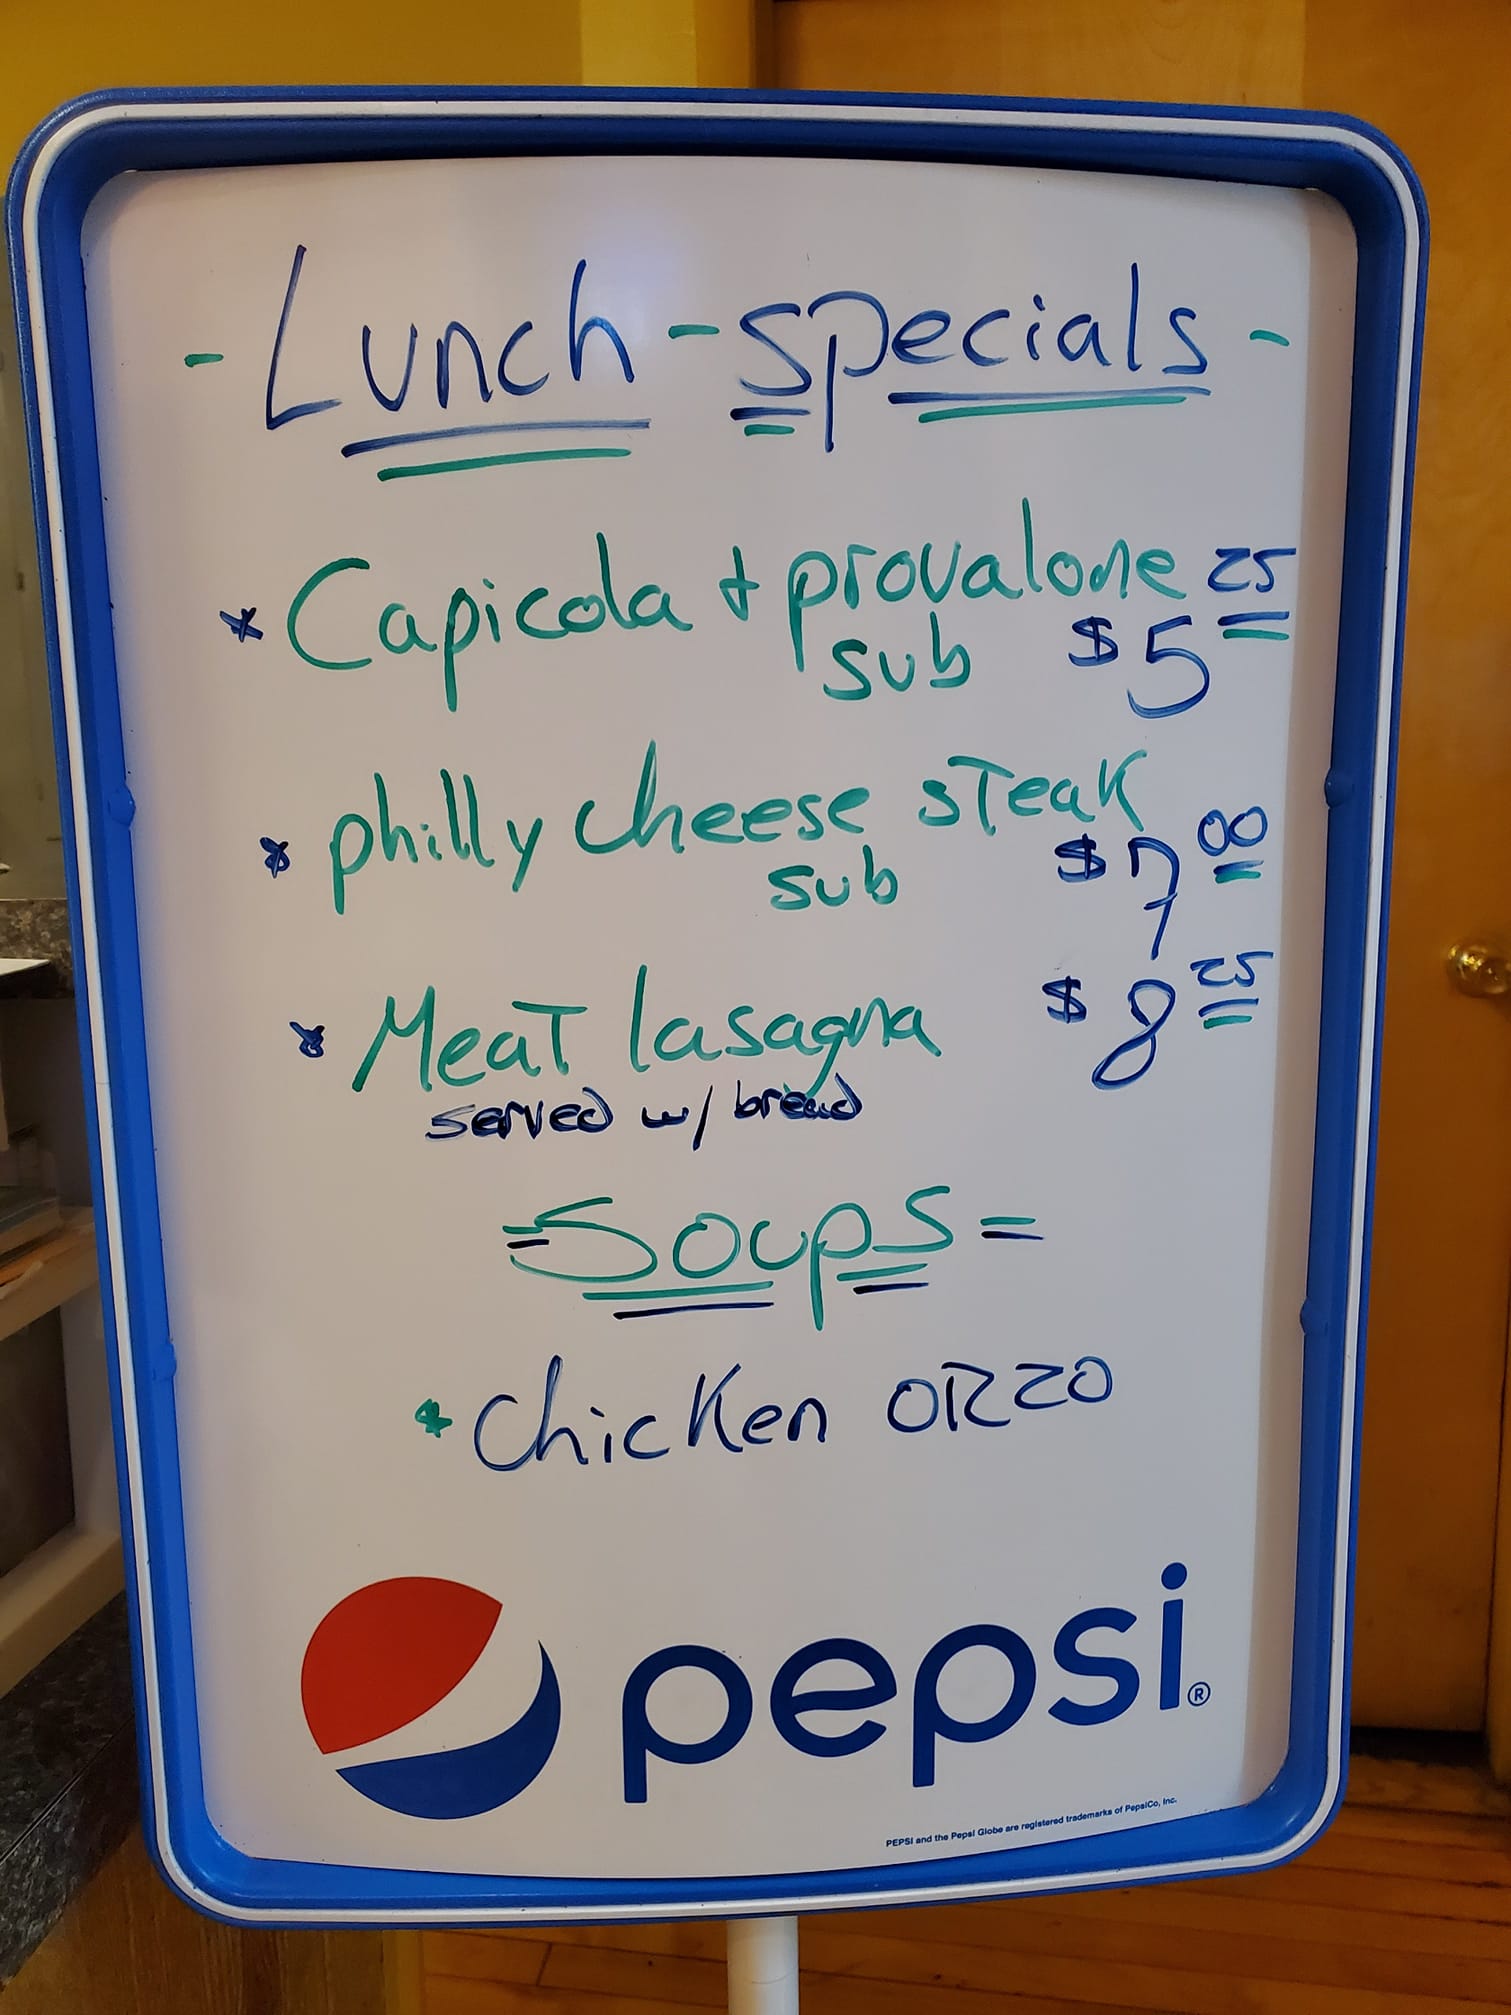 - Lunch - specials -
* Capicola + provalone
sub $5 25
* philly cheese steak
sub $7 00
* Meat lasagna $8 25
served w/ bread
= Soups =
* Chicken orzo
pepsi®
PEPSI and the Pepsi Globe are registered trademarks of PepsiCo, Inc.